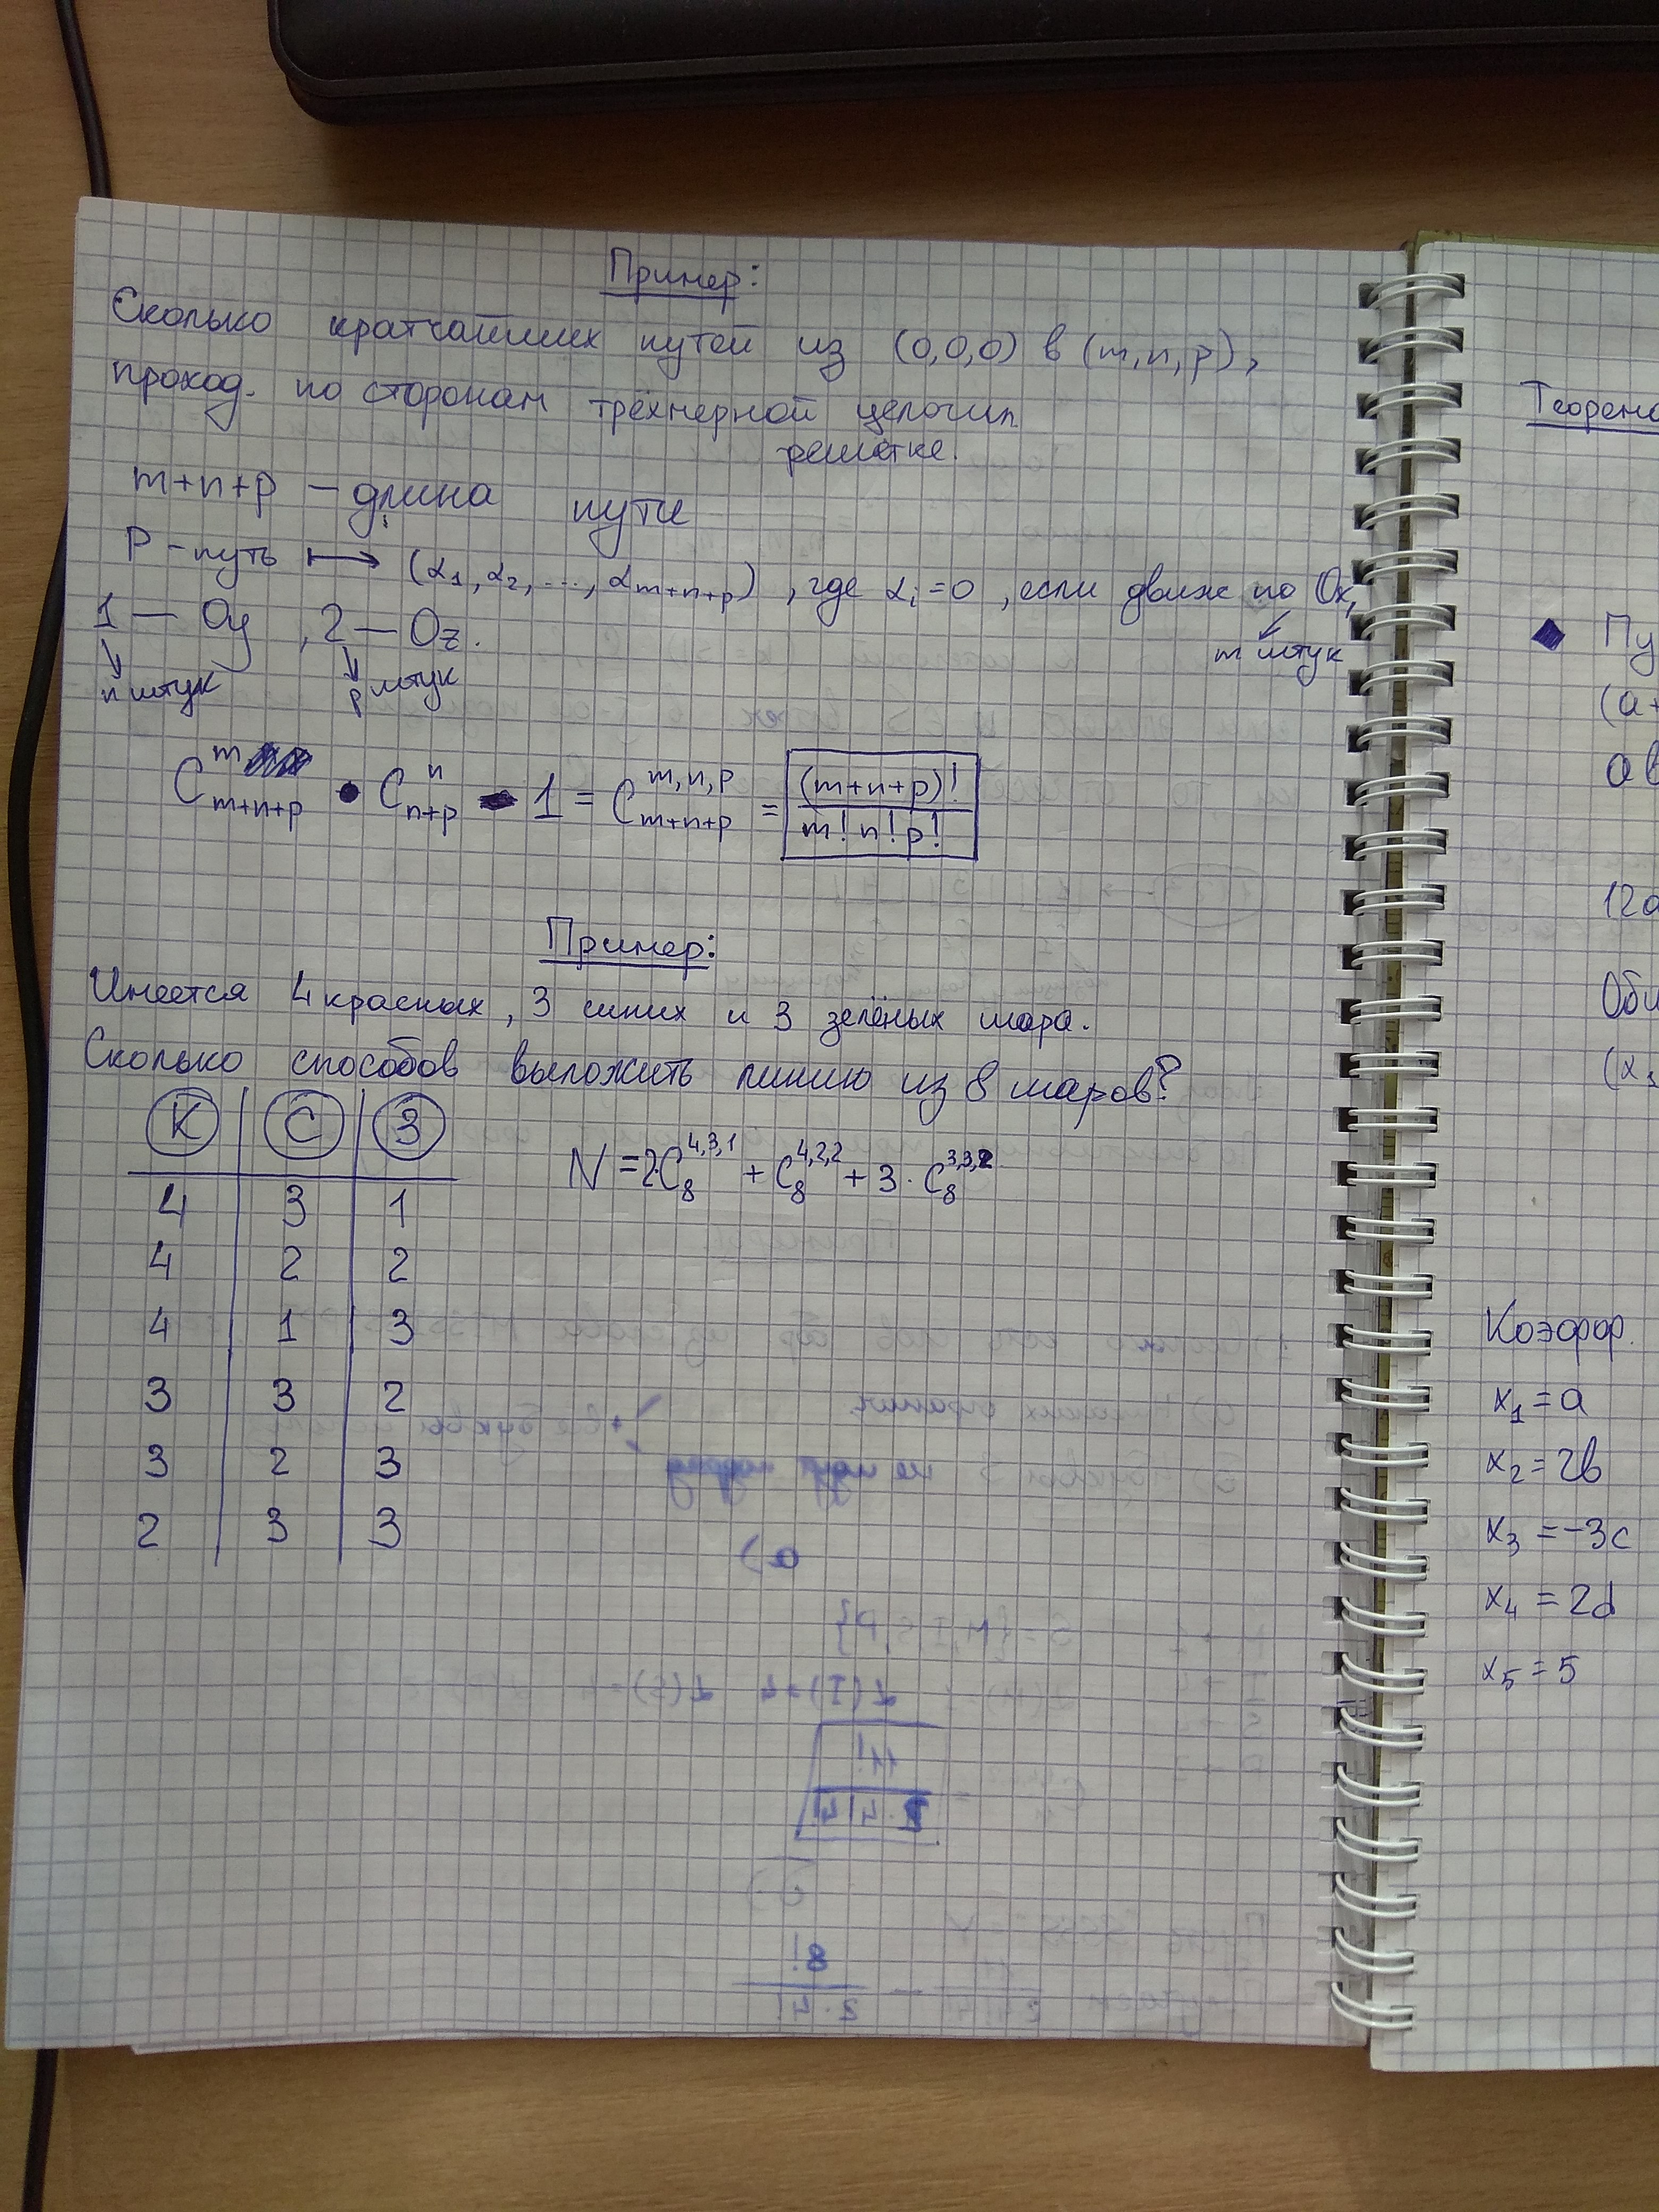 Пример:
Сколько кратчайших путей из (0,0,0) в (m,n,p),
проход. по сторонам трёхмерной целочисл.
решётке.
m+n+p – длина пути
P – путь ↦ (α₁, α₂, ..., αₘ₊ₙ₊ₚ), где αᵢ=0, если движ по Ox,
1 — Oy, 2 — Oz.
m штук
n штук p штук
C_{m+n+p}^{m} • C_{n+p}^{n} • 1 = C_{m+n+p}^{m,n,p} = (m+n+p)! / m! n! p!
Пример:
Имеется 4 красных, 3 синих и 3 зелёных шара.
Сколько способов выложить линию из 8 шаров?
К С З
N = 2·C_8^{4,3,1} + C_8^{4,2,2} + 3·C_8^{3,3,2}
4 3 1
4 2 2
4 1 3
3 3 2
3 2 3
2 3 3
Коэфф.
x₁ = a
x₂ = 2b
x₃ = -3c
x₄ = 2d
x₅ = 5